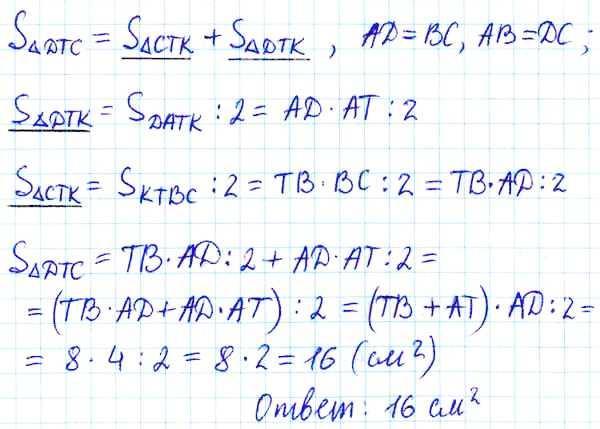 S△DTC = S△CTK + S△DTK , AD=BC, AB=DC ;
S△DTK = SDATK : 2 = AD · AT : 2
S△CTK = SKTBC : 2 = TB · BC : 2 = TB · AD : 2
S△DTC = TB · AD : 2 + AD · AT : 2 =
= (TB · AD + AD · AT) : 2 = (TB + AT) · AD : 2 =
= 8 · 4 : 2 = 8 · 2 = 16 (см²)
Ответ: 16 см²